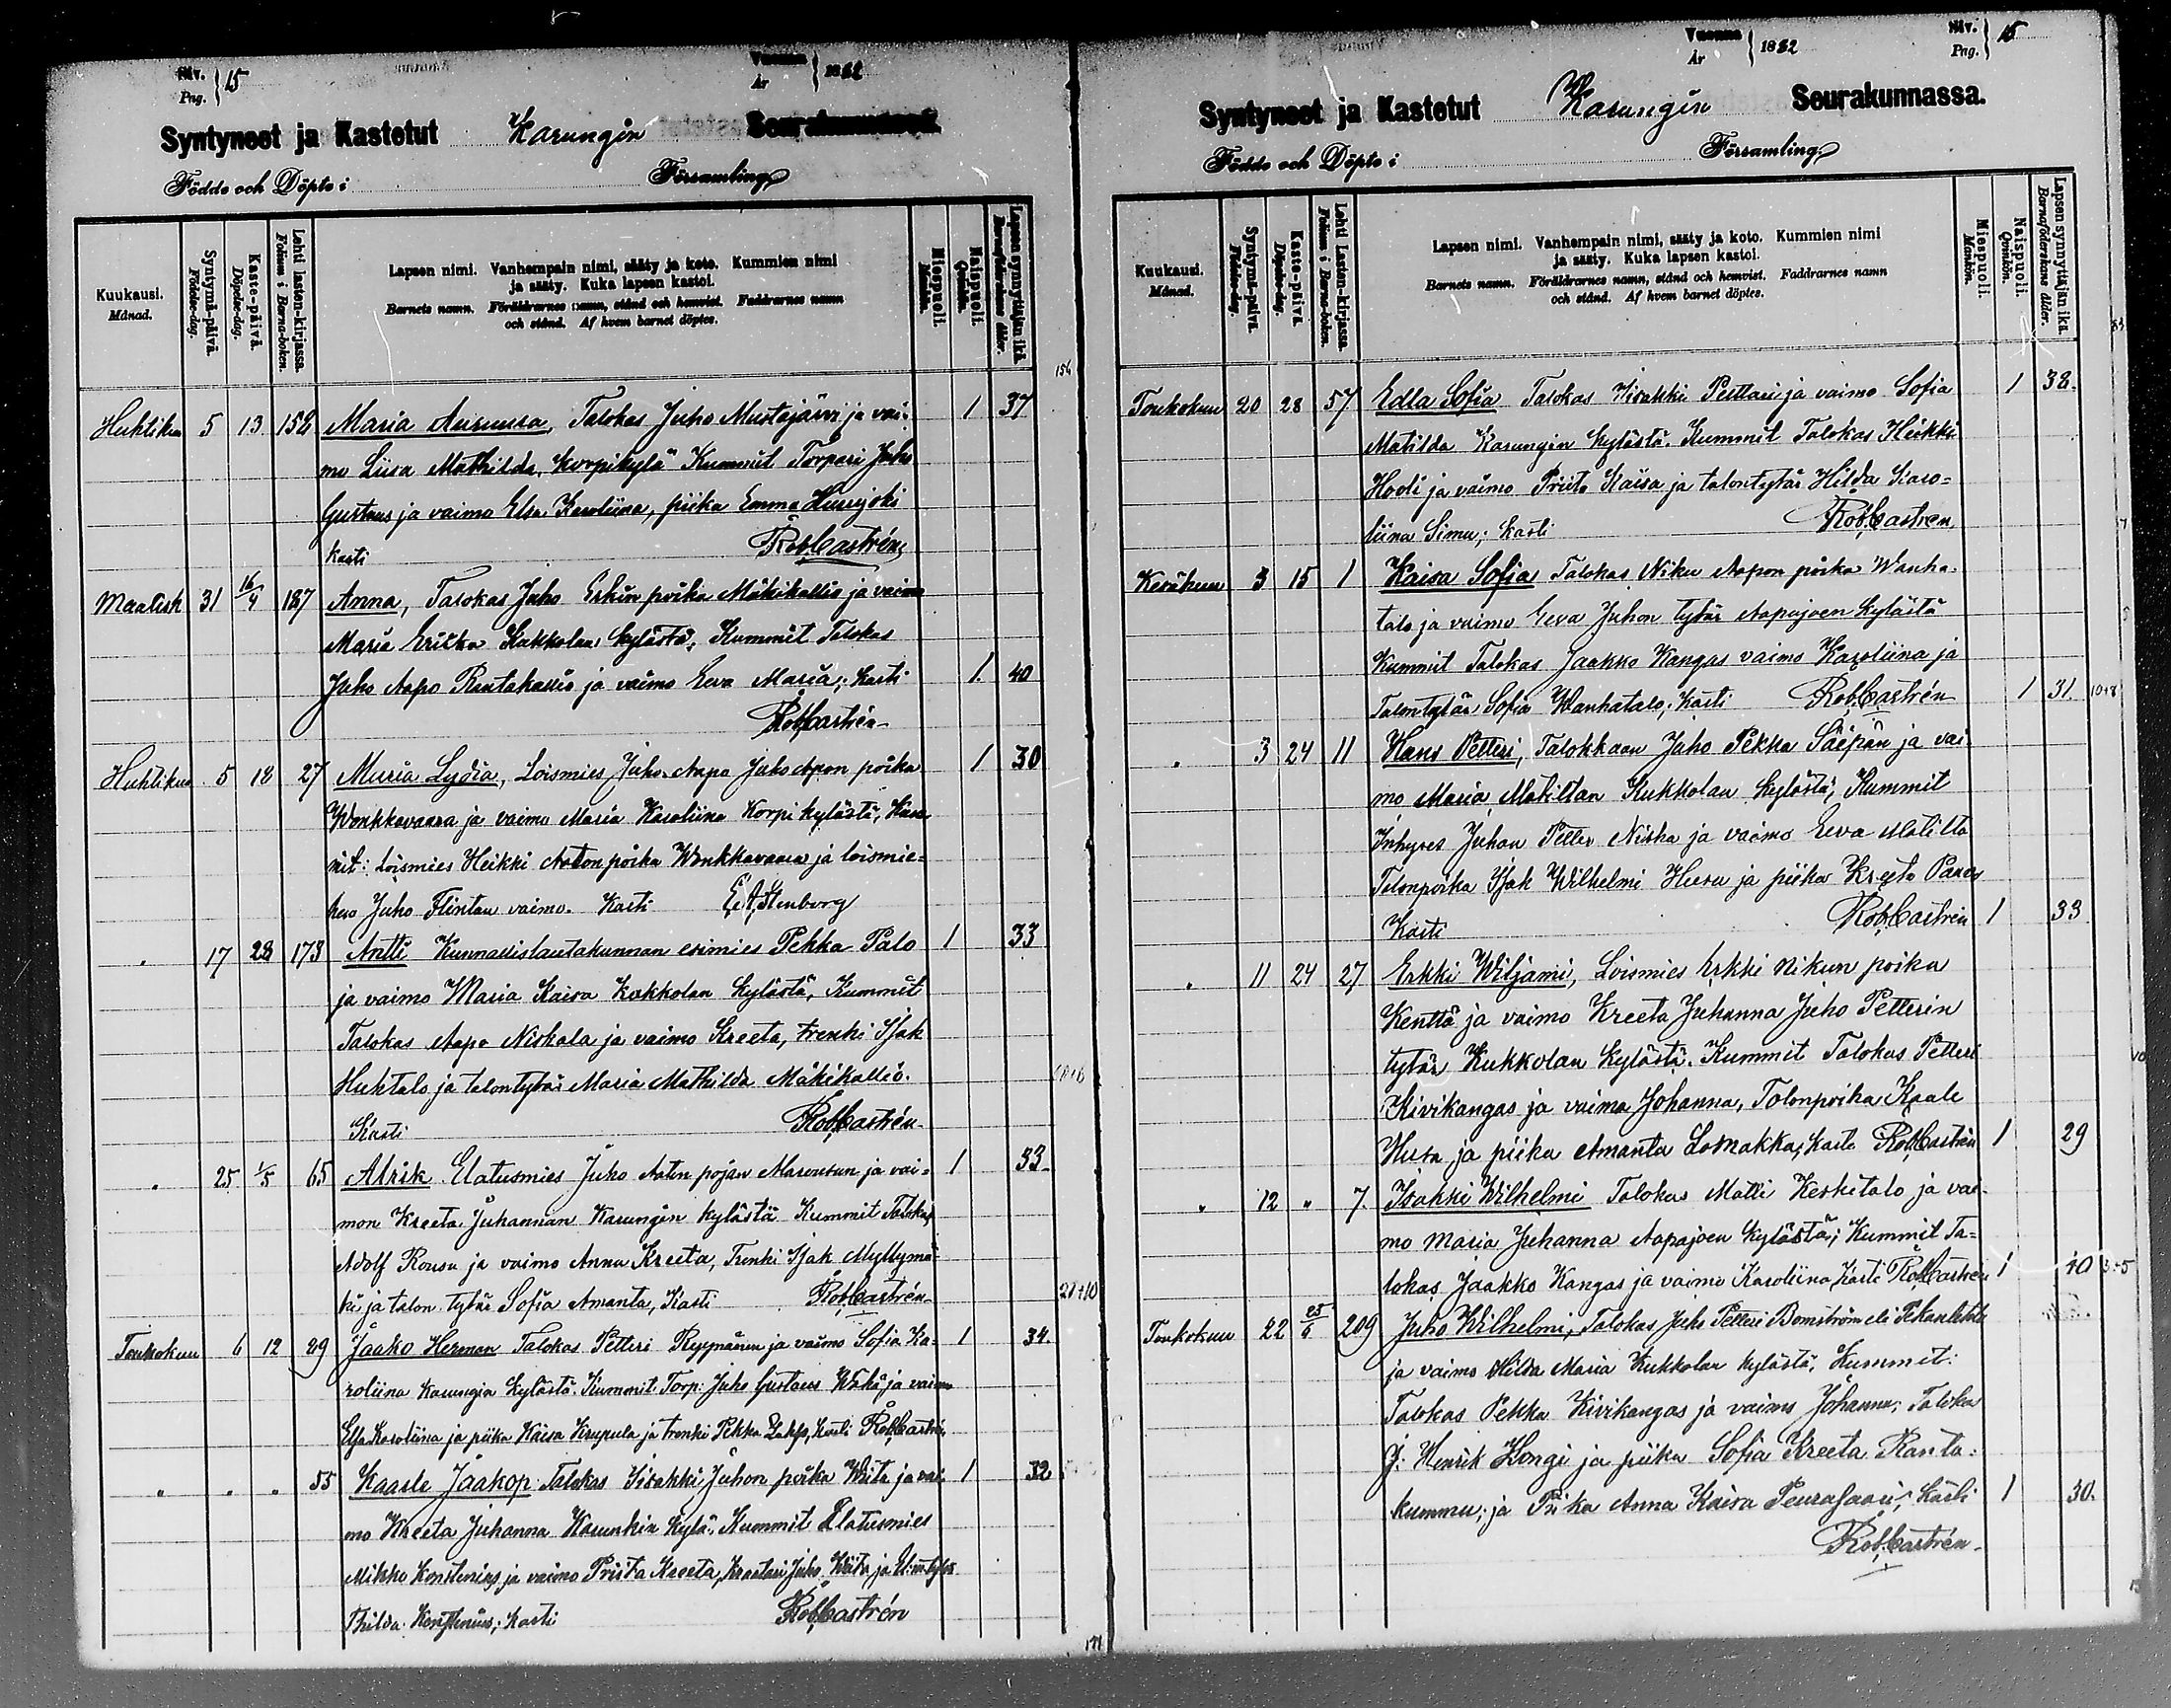 Niv. Png. } 15
Vuonna År } 1882
Syntyneet ja Kastetut Karungin Seurakunnassa.
Födde och Döpte i Församling
Kuukausi. Månad.
Syntymä-päivä. Födelse-dag.
Kaste-päivä. Döpelse-dag.
Lehti lasten-kirjassa. Folium i Barna-boken.
Lapsen nimi. Vanhempain nimi, sääty ja koto. Kummien nimi
ja sääty. Kuka lapsen kastoi.
Barnets namn. Föräldrarnes namn, stånd och hemvist. Faddrarnes namn
och stånd. Af hvem barnet döptes.
Miespuoli. Mankön.
Naispuoli. Qvinkön.
Lapsen synnyttäjän ikä. Barnaföderskans ålder.
Huhtikuu 5 13 152 Maria Auruura, Talokas Juho Mustajärvi ja vai- 1 37
mo Liisa Mathilda, Korpikylä Kummit Torpari Juho
Gustaus ja vaimo Elsa Karoliina, piika Emma
Kasti RobCastrén
Maalisk 31 16/4 187 Anna, Talokas Juho Erkin poika Mäkikallio ja vaimo
Maria Erika Kukkolan kylästä, Kummit Talokas
Juho Aapo Rantakallio ja vaimo Eeva Maria; Kasti 1. 40
RobCastrén
Huhtikuu 5 18 27 Maria Lydia, Loismies Juho Aapo Juho Apon poika 1 30
Wonkkavaara ja vaimo Maria Karoliina Korpikylästä, Kum
mit: Loismies Heikki Anton poika Wonkkavaara ja loismie-
hen Juho Flintan vaimo. Kasti E. A. Stenborg
" 17 28 173 Antti Kunnallislautakunnan esimies Pekka Palo 1 33
ja vaimo Maria Kaisa Kukkolan kylästä, Kummit
Talokas Aapo Niskala ja vaimo Kreeta, trenki Isak
Huhtalo ja talontytär Maria Mathilda Mäkikallio.
Kasti RobCastrén
" 25 1/5 65 Alrik Elatusmies Juho Antin pojan ja vai- 1 33
mon Kreeta Juhannan Karungin kylästä Kummit Talokas
Adolf Rousu ja vaimo Anna Kreeta, Trenki Isak Myllymä
ki ja talon tytär Sofia Amanta, Kasti RobCastrén
Toukokuu 6 12 29 Jaako Herman Talokas Petteri Ryynänen ja vaimo Sofia Ka- 1 34.
roliina Karungin kylästä. Kummit Torp: Juho Gustaus ja vaimo
Elsa Karoliina ja piika Kaisa Krupula ja trenki Pekka Kasti RobCastrén
" " " 55 Kaarle Jaakop Talokas Iisakki Juhon poika Wiita ja vai 1 32
mo Kreeta Juhanna Karunkin kylä. Kummit Elatusmies
Mikko Konstenius ja vaimo Priita Kreeta, Juho Wiita ja
Thilda Konstenius; Kasti RobCastrén
Niv. Png. } 15
Vuonna År } 1882
Syntyneet ja Kastetut Karungin Seurakunnassa.
Födde och Döpte i Församling
Kuukausi. Månad.
Syntymä-päivä. Födelse-dag.
Kaste-päivä. Döpelse-dag.
Lehti Lasten-kirjassa. Folium i Barna-boken.
Lapsen nimi. Vanhempain nimi, sääty ja koto. Kummien nimi
ja sääty. Kuka lapsen kastoi.
Barnets namn. Föräldrarnes namn, stånd och hemvist. Faddrarnes namn
och stånd. Af hvem barnet döptes.
Miespuoli. Mankön.
Naispuoli. Qvinkön.
Lapsen synnyttäjän ikä. Barnaföderskans ålder.
Toukokuu 20 28 57 Edla Sofia Talokas Iisakki Pelttari ja vaimo Sofia 1 38.
Matilda Karungin kylästä. Kummit Talokas Heikki
Hooli ja vaimo Priita Kaisa ja talontytär Hilda Karo-
liina Simu; Kasti RobCastrén
Kesäkuu 3 15 1 Kaisa Sofia Talokas Niku Aapon poika Wanha-
talo ja vaimo Eeva Juhon tytär Aapajoen kylästä
Kummit Talokas Jaakko Kangas vaimo Karoliina ja
Talontytär Sofia Wanhatalo; Kasti RobCastrén 1 31.
" 3 24 11 Hans Petteri, Talokkaan Juho Pekka Säépän ja vai
mo Maria Matiltan Kukkolan kylästä; Kummit
Inhyses Juhan Petter Niska ja vaimo Eeva Matilta
Talonpoika Isak Wilhelmi Huru ja piika Kreeta
Kasti RobCastrén 1 33
" 11 24 27 Erkki Wiljami, Loismies Erkki Nikun poika
Kenttä ja vaimo Kreeta Juhanna Juho Petterin
tytär Kukkolan kylästä. Kummit Talokas Petteri
Kivikangas ja vaimo Johanna, Talonpoika Kaale
Husa ja piika Amanta Lomakka; Kasti RobCastrén 1 29
" 12 " 7. Isakki Wilhelmi Talokas Matti Keskitalo ja vai-
mo Maria Juhanna Aapajoen kylästä; Kummit Ta-
lokas Jaakko Kangas ja vaimo Karoliina Kasti RobCastrén 1 40
Toukokuu 22 25/6 209 Juho Wilhelmi, Talokas Juho Petteri Bomström eli
ja vaimo Hilda Maria Kukkolan kylästä, Kummit:
Talokas Pekka Kivikangas ja vaimo Johanna; Talokas
J. Henrik Kongi ja piika Sofia Kreeta Ranta-
kummu; ja Piika Anna Kaisa Peurasaari; Kasti 1 30.
RobCastrén